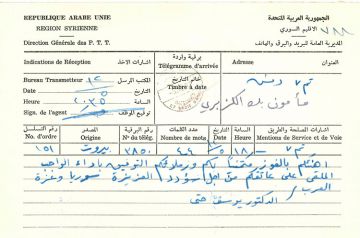 REPUBLIQUE ARABE UNIE
الجمهورية العربية المتحدة
REGION SYRIENNE
الاقليم السوري
٧٨٨
Direction Générale des P. T. T.
المديرية العامة للبريد والبرق والهاتف
Indications de Réception
اشارات الاخذ
برقية واردة
Télégramme d'arrivée
Adresse
العنوان
Bureau Transmetteur
المكتب المرسل
خاتم التاريخ
Timbre à date
Date
التاريخ
Heure
الساعة
Sign. de l'agent
توقيع الموظف
دمشق
مأمون بك الكزبري
رقم التسلسل
No. d'ordre
المصدر
Origine
رقم البرقية
No de télég.
عدد الكلمات
Nombre de mots
التاريخ
Date
الساعة
Heure
اشارات الصفحة والطريق
Mentions de Service et de Voie
١٥١
بيروت
٣٨٥٠
٤٤
١٨
اهنئكم بالفوز متمنيا لكم وزملائكم التوفيق باداء الواجب
الملقى على عاتقكم من اجل سؤدد العزيزة سوريا وعزة
العرب
الدكتور يوسف حتي